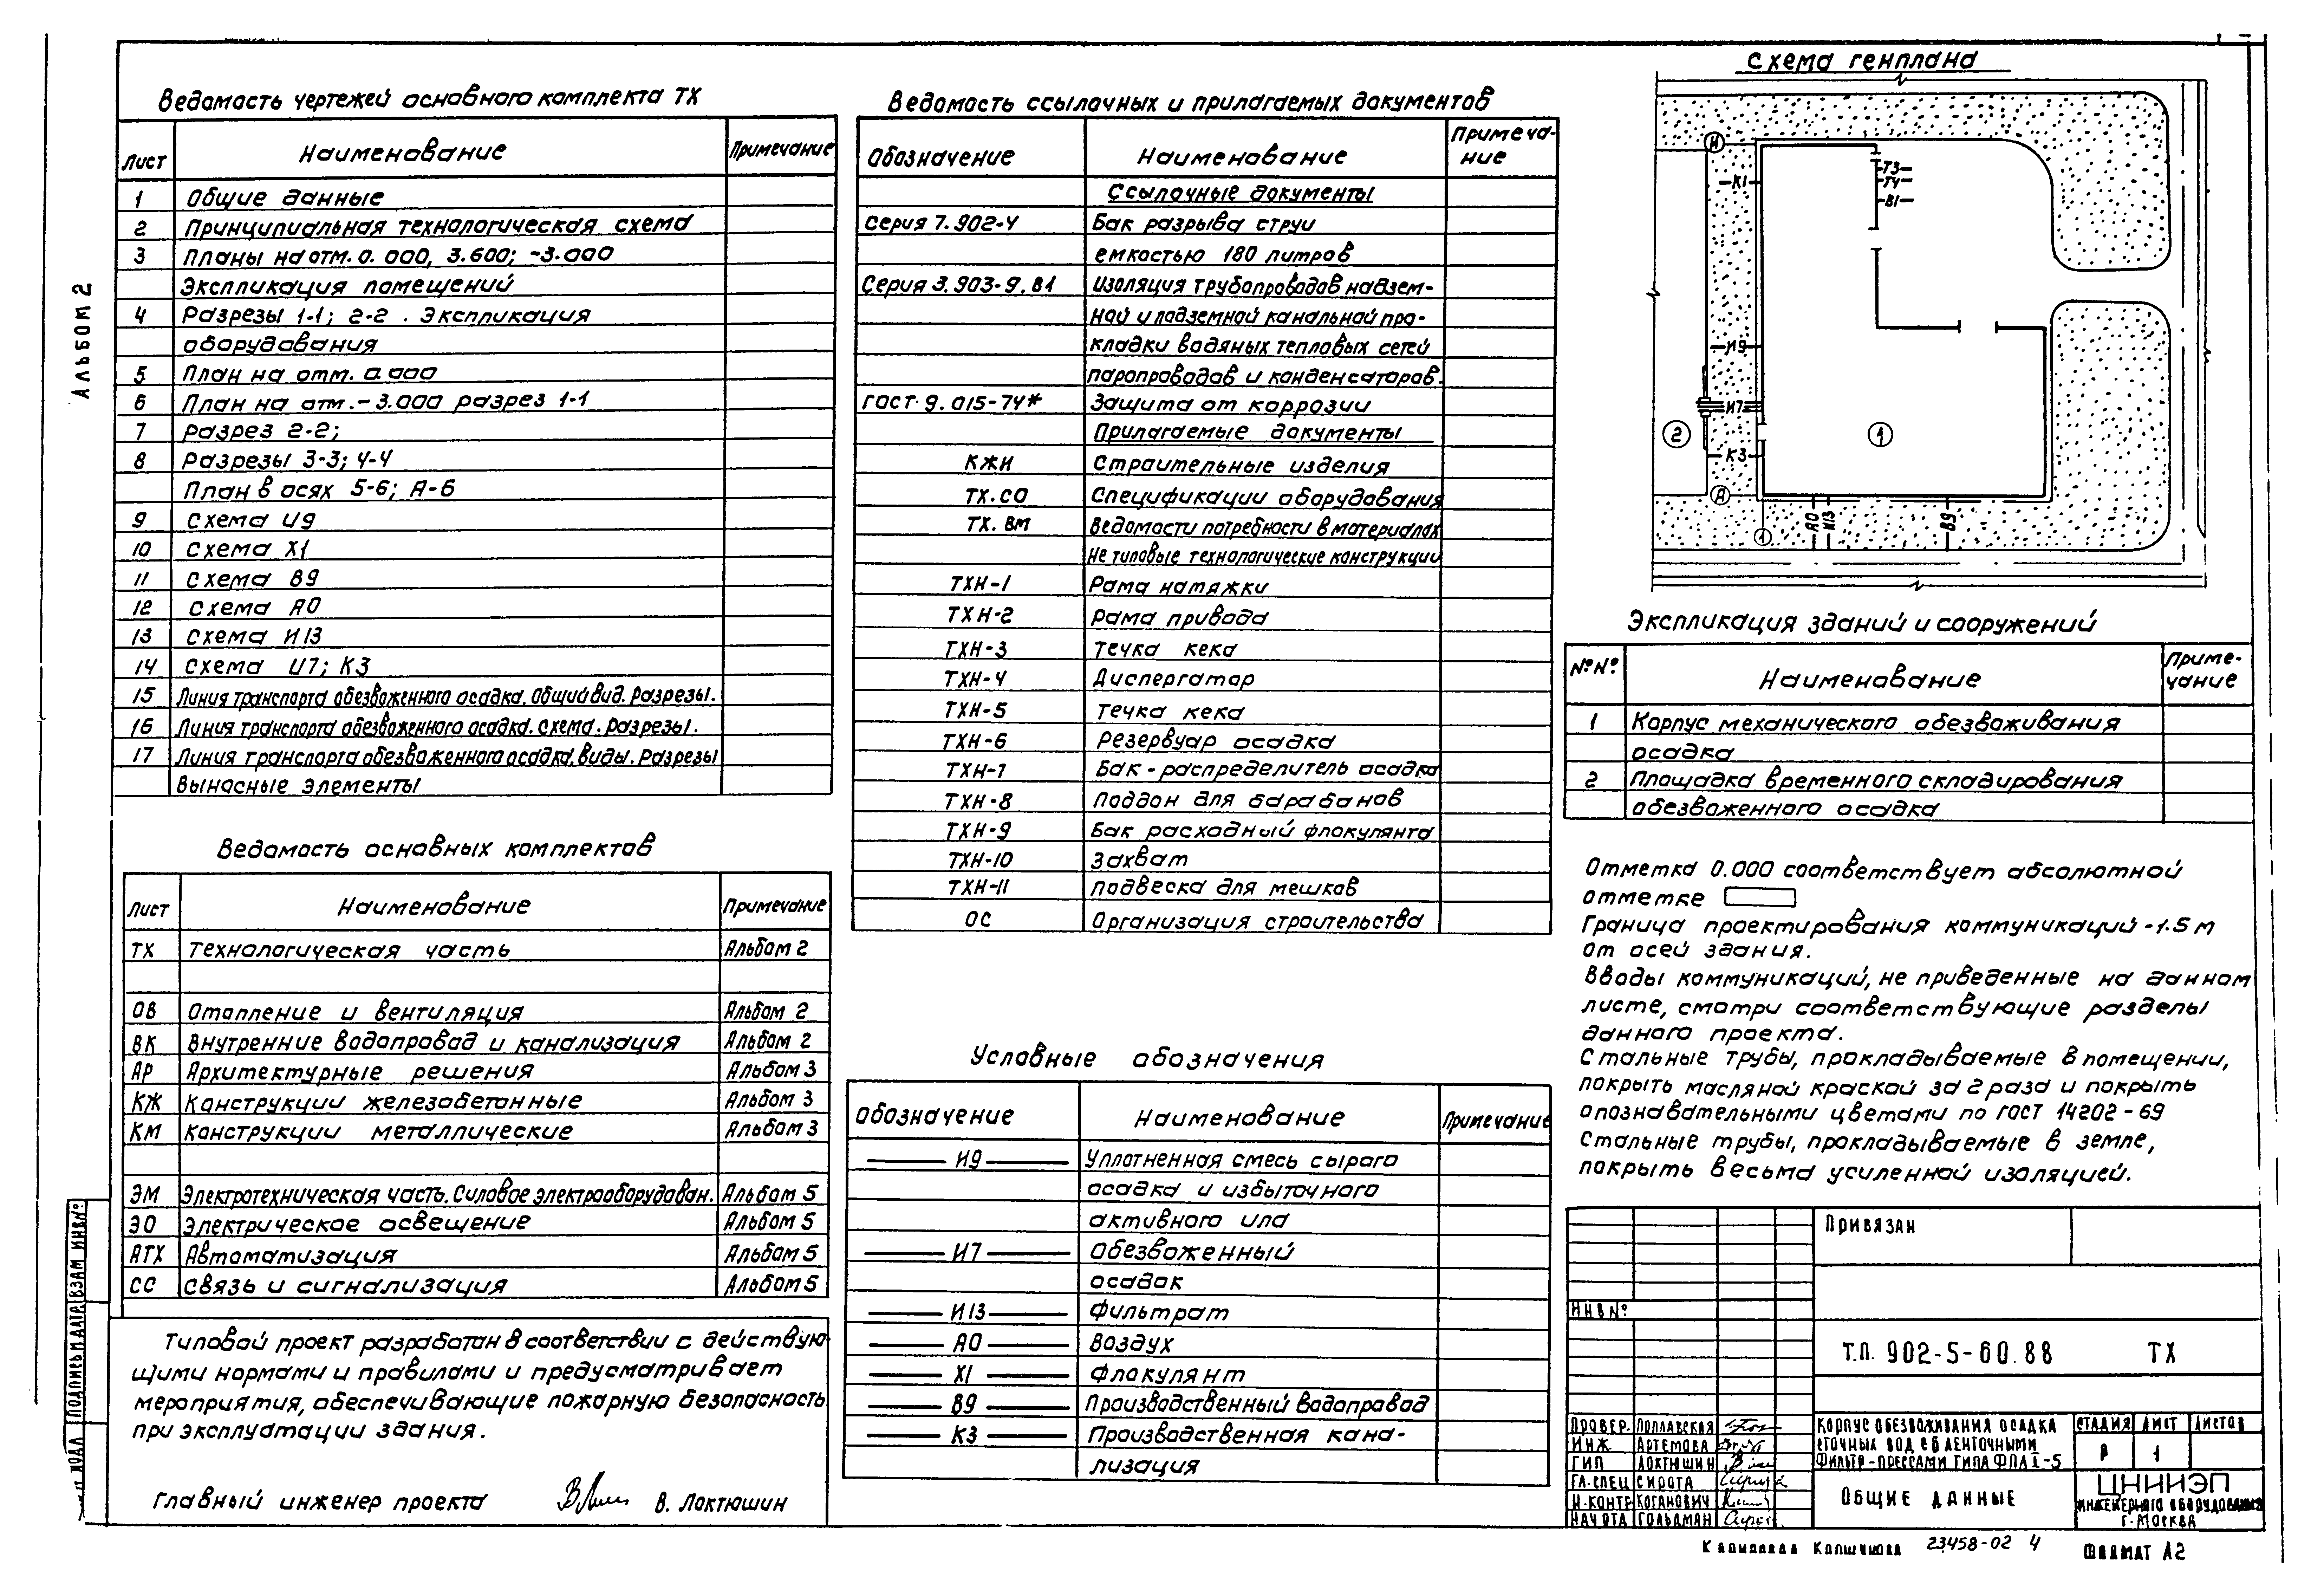 Альбом 2
Ведомость чертежей основного комплекта ТХ
Лист Наименование Примечание
1 Общие данные
2 Принципиальная технологическая схема
3 Планы на отм. 0.000, 3.600; -3.000
Экспликация помещений
4 Разрезы 1-1; 2-2. Экспликация
оборудования
5 План на отм. 0.000
6 План на отм. -3.000 разрез 1-1
7 Разрез 2-2;
8 Разрезы 3-3; 4-4
План в осях 5-6; А-Б
9 Схема И9
10 Схема Х1
11 Схема В9
12 Схема А0
13 Схема И13
14 Схема И7; К3
15 Линия транспорта обезвоженного осадка. Общий вид. Разрезы.
16 Линия транспорта обезвоженного осадка. Схема. Разрезы.
17 Линия транспорта обезвоженного осадка. Виды. Разрезы
Выносные элементы
Ведомость основных комплектов
Лист Наименование Примечание
ТХ Технологическая часть Альбом 2
ОВ Отопление и вентиляция Альбом 2
ВК Внутренние водопровод и канализация Альбом 2
АР Архитектурные решения Альбом 3
КЖ Конструкции железобетонные Альбом 3
КМ Конструкции металлические Альбом 3
ЭМ Электротехническая часть. Силовое электрооборудован. Альбом 5
ЭО Электрическое освещение Альбом 5
АТХ Автоматизация Альбом 5
СС Связь и сигнализация Альбом 5
Типовой проект разработан в соответствии с действую-
щими нормами и правилами и предусматривает
мероприятия, обеспечивающие пожарную безопасность
при эксплуатации здания.
Главный инженер проекта В. Локтюшин
Ведомость ссылочных и прилагаемых документов
Обозначение Наименование Примеча-
ние
Ссылочные документы
Серия 7.902-4 Бак разрыва струи
емкостью 180 литров
Серия 3.903-9.В1 Изоляция трубопроводов надзем-
ной и подземной канальной про-
кладки водяных тепловых сетей
паропроводов и конденсаторов.
ГОСТ 9.015-74* Защита от коррозии
Прилагаемые документы
КЖИ Строительные изделия
ТХ.СО Спецификации оборудования
ТХ.ВМ Ведомости потребности в материалах
Не типовые технологические конструкции
ТХН-1 Рама натяжки
ТХН-2 Рама привода
ТХН-3 Течка кека
ТХН-4 Диспергатор
ТХН-5 Течка кека
ТХН-6 Резервуар осадка
ТХН-7 Бак-распределитель осадка
ТХН-8 Поддон для барабанов
ТХН-9 Бак расходный флокулянта
ТХН-10 Захват
ТХН-11 Подвеска для мешков
ОС Организация строительства
Условные обозначения
Обозначение Наименование Примечание
И9 Уплотненная смесь сырого
осадка и избыточного
активного ила
И7 Обезвоженный
осадок
И13 Фильтрат
А0 Воздух
Х1 Флокулянт
В9 Производственный водопровод
К3 Производственная кана-
лизация
Схема генплана
И
К1
Т3
Т4
В1
И9
И7
2
1
К3
А
А0
И13
В9
1
Экспликация зданий и сооружений
№№ Наименование Приме-
чание
1 Корпус механического обезвоживания
осадка
2 Площадка временного складирования
обезвоженного осадка
Отметка 0.000 соответствует абсолютной
отметке
Граница проектирования коммуникаций -1.5 м
от осей здания.
Вводы коммуникаций, не приведенные на данном
листе, смотри соответствующие разделы
данного проекта.
Стальные трубы, прокладываемые в помещении,
покрыть масляной краской за 2 раза и покрыть
опознавательными цветами по ГОСТ 14202-69
Стальные трубы, прокладываемые в земле,
покрыть весьма усиленной изоляцией.
Привязан
Инв №
Т.П. 902-5-60.88 ТХ
Провер. Поплавская
Инж Артемова
ГИП Локтюшин
Гл.спец Сирота
Н.контр Коганович
Нач ота Гольдман
Корпус обезвоживания осадка
сточных вод с 6 ленточными
фильтр-прессами типа ФПА I-5
Стадия Лист Листов
Р 1
Общие данные
ЦНИИЭП
инженерного оборудования
г. Москва
Взам инв №
Подпись и дата
23458-02 4
Формат А2